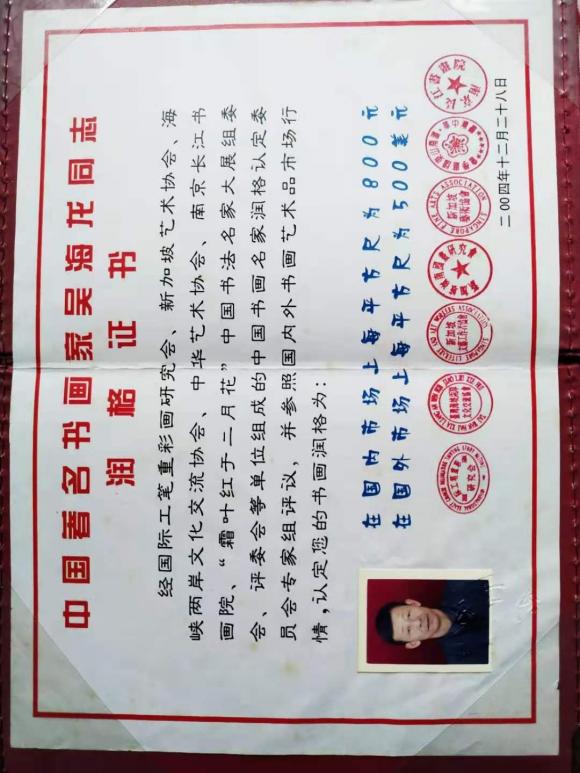 中国著名书画家吴海龙同志
润格证书
经国际工笔重彩画研究会、新加坡艺术协会、海
峡两岸文化交流协会、中华艺术协会、南京长江书
画院、“霜叶红于二月花”中国书法名家大展组委
会、评委会等单位组成的中国书画名家润格认定委
员会专家组评议，并参照国内外书画艺术品市场行
情，认定您的书画润格为：
在国内市场上每平方尺为800元
在国外市场上每平方尺为500美元
SINGAPORE FINE ARTS ASSOCIATION
新加坡
南京长江书画院
二00四年十二月二十八日